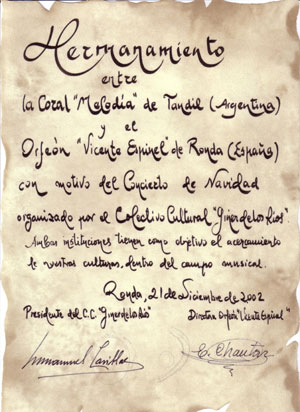 Hermanamiento
entre
la Coral "Melodía" de Tandil (Argentina)
y el
Orfeón "Vicente Espinel" de Ronda (España)
con motivo del Concierto de Navidad
organizado por el Colectivo Cultural "Giner de los Ríos".
Ambas instituciones tienen como objetivo el acercamiento
de nuestras culturas, dentro del campo musical.
Ronda, 21 de Diciembre de 2002
Presidente del C.C. "Giner de los Ríos" Directora Orfeón "Vicente Espinel"